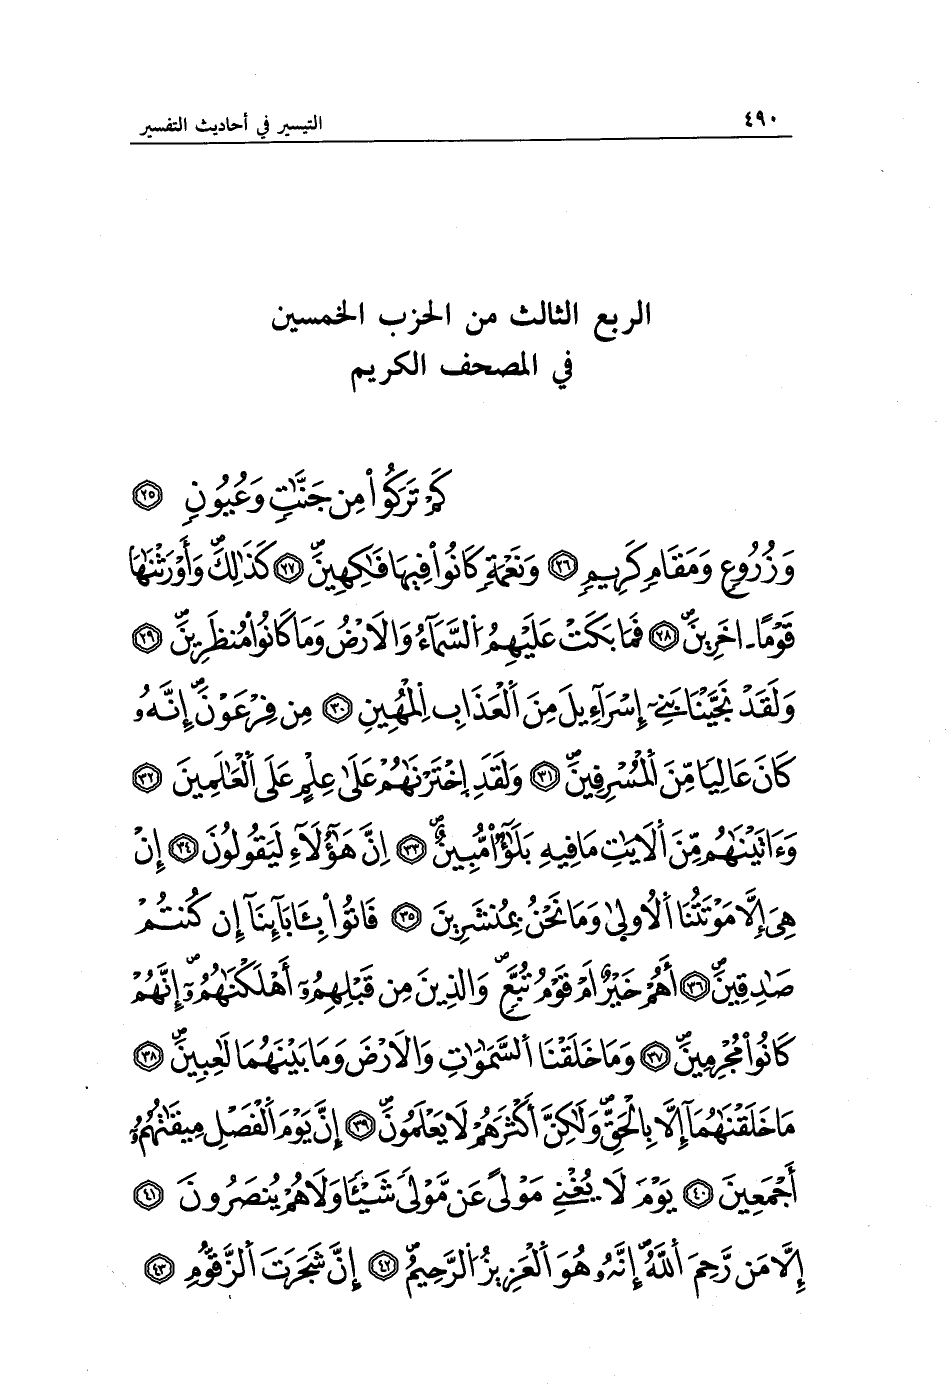 ٤٩٠ التيسير في أحاديث التفسير
الربع الثالث من الحزب الخمسين
في المصحف الكريم
كَمْ تَرَكُواْ مِن جَنَّٰتٖ وَعُيُونٖ ٢٥
وَزُرُوعٖ وَمَقَامٖ كَرِيمٖ ٢٦ وَنَعْمَةٖ كَانُواْ فِيهَا فَٰكِهِينَۖ ٢٧ كَذَٰلِكَۖ وَأَوْرَثْنَٰهَا
قَوْماً ـ اخَرِينَۖ ٢٨ فَمَا بَكَتْ عَلَيْهِمُ السَّمَآءُ وَالَارْضُ وَمَا كَانُواْ مُنظَرِينَۖ ٢٩
وَلَقَدْ نَجَّيْنَا بَنِےٓ إِسْرَآءِيلَ مِنَ اَلْعَذَابِ اِلْمُهِينِ ٣٠ مِن فِرْعَوْنَۖ إِنَّهُۥ
كَانَ عَالِيٗا مِّنَ اَلْمُسْرِفِينَۖ ٣١ وَلَقَدِ اِخْتَرْنَٰهُمْ عَلَىٰ عِلْمٍ عَلَى اَلْعَٰلَمِينَ ٣٢
وَءَاتَيْنَٰهُم مِّنَ اَلَايَٰتِ مَا فِيهِ بَلَٰٓؤٌاْ مُّبِينٌۖ ٣٣ اِنَّ هَٰٓؤُلَآءِ لَيَقُولُونَ ٣٤ إِنْ
هِىَ إِلَّا مَوْتَتُنَا اَلُاولىٰ وَمَا نَحْنُ بِمُنشَرِينَ ٣٥ فَاتُواْ بِـَٔابَآئِنَآ إِن كُنتُمْ
صَٰدِقِينَۖ ٣٦ أَهُمْ خَيْرٌ اَمْ قَوْمُ تُبَّعٖۖ وَالذِينَ مِن قَبْلِهِمُۥٓ أَهْلَكْنَٰهُمُۥٓۖ إِنَّهُمْ
كَانُواْ مُجْرِمِينَۖ ٣٧ وَمَا خَلَقْنَا اَلسَّمَٰوَٰتِ وَالَارْضَ وَمَا بَيْنَهُمَا لَٰعِبِينَۖ ٣٨
مَا خَلَقْنَٰهُمَآ إِلَّا بِالْحَقِّۖ وَلَٰكِنَّ أَكْثَرَهُمْ لَا يَعْلَمُونَۖ ٣٩ إِنَّ يَوْمَ اَلْفَصْلِ مِيقَٰتُهُمُۥٓ
أَجْمَعِينَ ٤٠ يَوْمَ لَا يُغْنِے مَوْلىً عَن مَّوْلىٗ شَيْـٔاٗ وَلَا هُمْ يُنصَرُونَ ٤١
إِلَّا مَن رَّحِمَ اَللَّهُۖ إِنَّهُۥ هُوَ اَلْعَزِيزُ اُلرَّحِيمُۖ ٤٢ إِنَّ شَجَرَتَ اَلزَّقُّومِ ٤٣